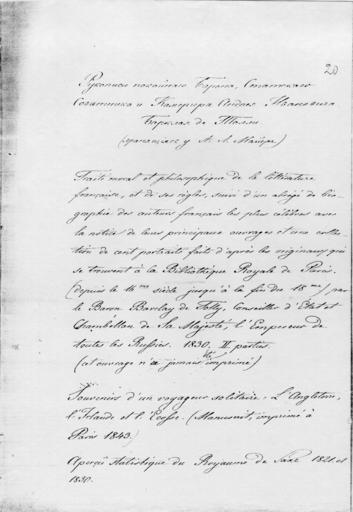 20
Рукописи покойного Барона, Статского
Советника и Камергера Андрея Яковлевича
Барклая де Толли
(хранящіяся у А. Л. Майера)
Traité moral et philosophique de la littérature
française, et de ses règles, suivi d'un abrégé de bio-
graphie des auteurs français les plus célèbres avec
la notice de leurs principaux ouvrages et une collec-
tion de cent portraits faits d'après les originaux qui
se trouvent à la Bibliothèque Royale de Paris.
(depuis le 14me siècle jusqu'à la fin du 18me) par
le Baron Barclay de Tolly, Conseiller d'État et
Chambellan de Sa Majesté l'Empereur de
toutes les Russies. 1830. II parties.
(cet ouvrage n'a jamais été imprimé)
Souvenirs d'un voyageur solitaire: L'Angleterre,
l'Irlande et l'Ecosse. (Manuscrit, imprimé à
Paris 1843.)
Aperçu statistique du Royaume de Saxe 1821 et
1830.